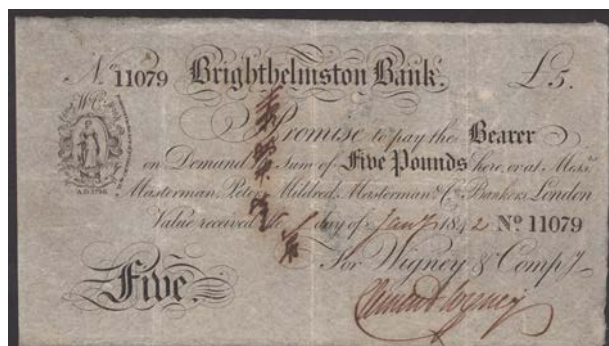 No 11079 Brighthelmston Bank. £5.
W&Co
I Promise to pay the Bearer
on Demand Sum of Five Pounds here, or at Messrs
Masterman, Peters, Mildred, Masterman & Co Bankers London
Value received day of Jany 1842 No 11079
For Wigney & Compy
Five.